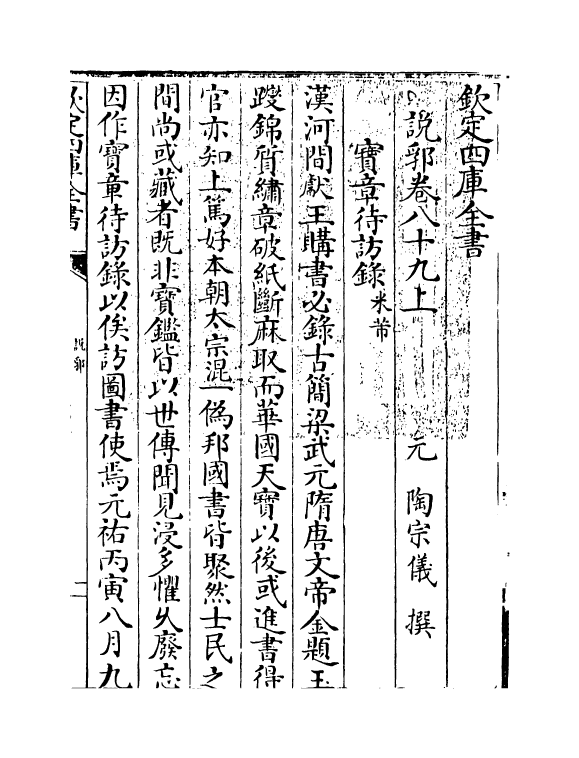 欽定四庫全書
說郛卷八十九上
元 陶宗儀 撰
寶章待訪錄 米芾
漢河間獻王購書必錄古簡梁武元隋唐文帝金題玉
躞錦質繡章破紙斷麻取而華國天寶以後或進書得
官亦知上篤好本朝太宗混一偽邦國書皆聚然士民之
間尚或藏者既非寶鑑皆以世傳聞見浸多懼久廢忘
因作寶章待訪錄以俟訪圖書使焉元祐丙寅八月九
欽定四庫全書
說郛